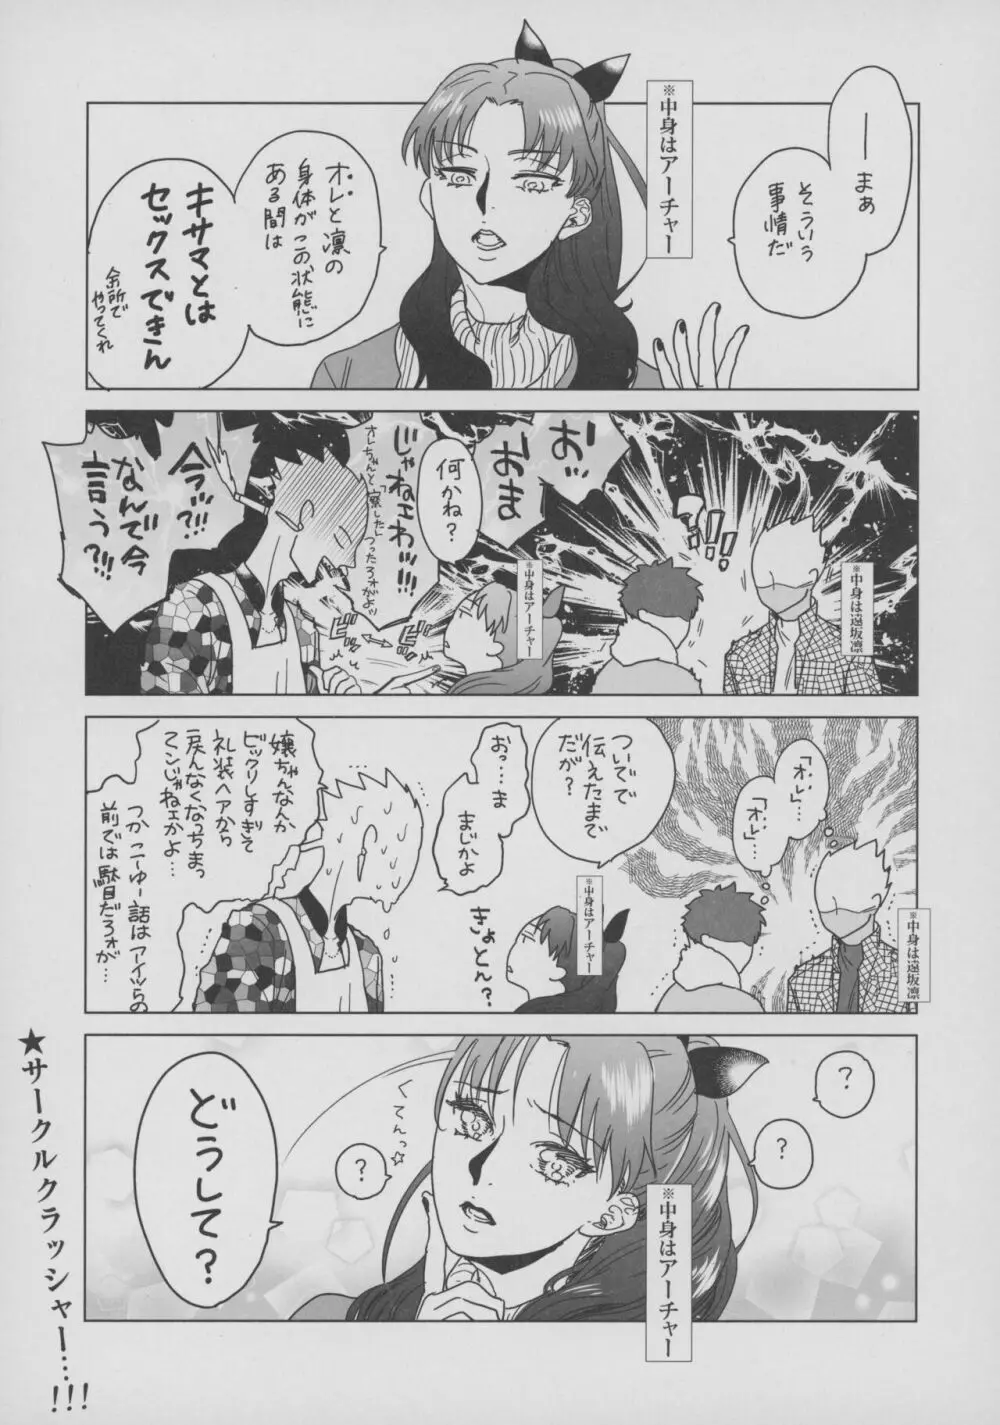 ―まぁ
そういう
事情だ
※中身はアーチャー
オレと凛の
身体がこの状態に
ある間は
キサマとは
セックスできん
余所で
やってくれ
おッ
おま
何かね?
じゃねェわッ!!!
オレちゃんと「察した」つったろォがよッ
今ッ!!!
なんで今
言う?!!!
※中身はアーチャー
※中身は遠坂凛
ビビビ
ビビビ
「オレ」…
「オレ」…
ついでで
伝えたまで
だが?
おっ…ま
まじかよ
きょとん?
嬢ちゃんなんか
ビックリしすぎて
礼装ヘアから
戻んなくなっちまっ
てンじゃねェかよ…
つかこーゆー話はアイツらの
前では駄目だろォが…
※中身はアーチャー
※中身は遠坂凛
?
?
?
くてんっ☆
どうして?
※中身はアーチャー
★サークルクラッシャー…!!!